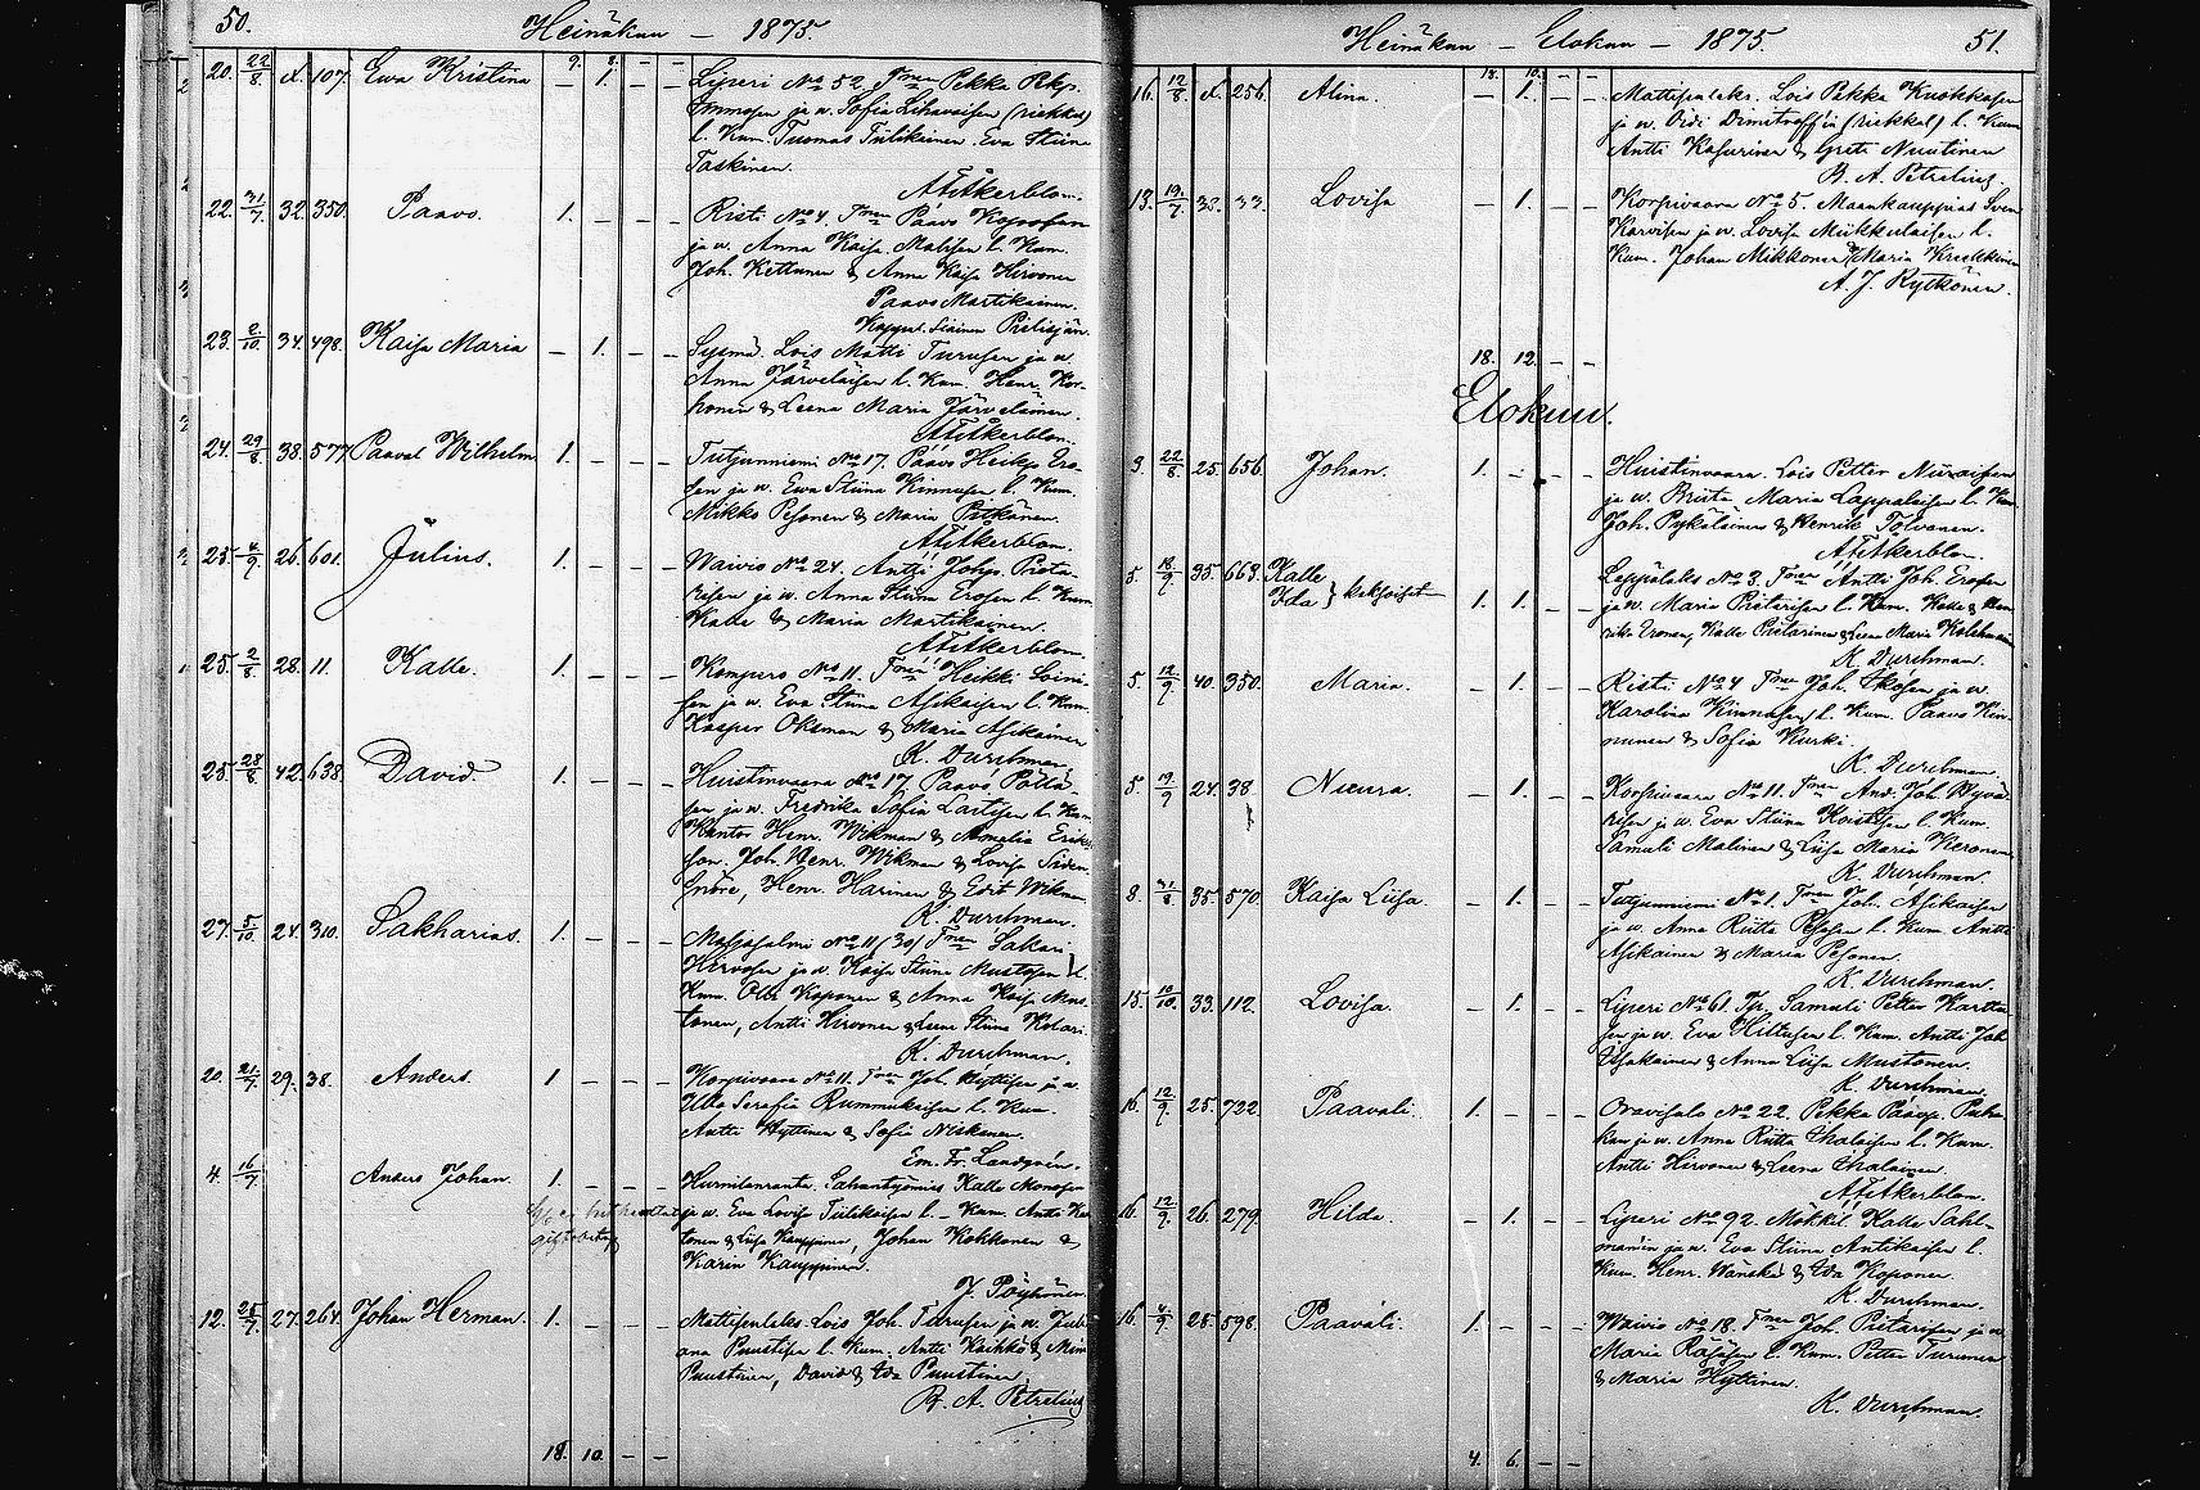 50.
Heinäkuu — 1875.
9. 8. — —
20. 22/8. d. 107. Ewa Kristina — 1. — — Liperi No 52. Pekka Pekp.
Immosen ja v. Sofia Lihavaisen (riekkal)
l. Kum. Tuomas Tiilikainen. Eva Stiina
Taskinen.
A F Åkerblom.
22. 31/7. 32. 350. Paavo. 1. — — — Risti No 4. Paavo Koposen
ja v. Anna Kaisa Malisen l. Kum.
Joh. Kettunen & Anna Kaisa Hirvonen
Paavo Martikainen.
Kappal. Pielisjär.
23. 2/10. 34. 498. Kaisa Maria — 1. — — Sysmä. Lois Matti Turusen ja v.
Anna Järveläisen l. Kum. Henr. Kor-
honen & Leena Maria Järveläinen.
A F Åkerblom.
24. 29/8. 38. 577. Paaval Wilhelm 1. — — — Tutjunniemi No 17. Paavo Heikp. Ero-
sen ja v. Ewa Stiina Kinnusen l. Kum.
Mikko Pesonen & Maria Pitkänen.
A F Åkerblom.
25. 4/9. 26. 601. Julius. 1. — — — Waivio No 24. Antti Johp. Pieta-
risen ja v. Anna Stiina Erosen l. Kum.
Kalle & Maria Martikainen.
A F Åkerblom.
25. 2/8. 28. 11. Kalle. 1. — — — Kompero No 11. Heikki Soini-
sen ja v. Eva Stiina Asikaisen l. Kum.
Kasper Oksman & Maria Asikainen
K. Durchman.
25. 28/8. 42. 638. David. 1. — — — Huistinvaara No 17. Paavo Pöllä-
sen ja v. Fredrika Sofia Lartisen l. Kum
Kantor Henr. Wikman & Amalia Eriks-
son. Joh. Henr. Wikman & Lovisa Siden-
Snöre, Henr. Harinen & Edit Wikman
K. Durchman.
27. 5/10. 24. 310. Sakharias. 1. — — — Maljasalmi No 11/30/ Sakari
Hirvosen ja v. Kaisa Stiina Mustosen l.
Kum. Olli Koponen & Anna Kaisa Mus-
tonen, Antti Hirvonen & Leena Stiina Kolari.
K. Durchman.
20. 21/7. 29. 38. Anders. 1 — — — Korpivaara No 11. Joh. Hyttisen ja v.
Ulla Serafia Rummukaisen l. Kum.
Antti Hyttinen & Sofia Niskanen.
Em. Fr. Landgrén.
4. 16/7. Anders Johan. 1. — — — Hurmilanranta. Sahantyömies Kalle Monosen
ja v. Eva Lovisa Tiilikaisen l. — Kum. Antti
tonen & Liisa Kauppinen, Johan Kokkonen &
Karin Kauppinen.
J. Pöyhönen.
12. 25/7. 27. 264. Johan Herman. 1. — — — Mattisenlaks. Lois Joh. Turusen ja v. Juli-
ana Puustisen l. Kum. Antti Kaihko & Mina
Puustinen, David & Ida Puustinen.
B. A. Petrelius
18. 10. — —
Heinäkuu — Elokuu — 1875.
51.
18. 10. — —
16. 12/8. d. 256. Alina. — 1. — — Mattisenlaks. Lois Pekka Kuokkasen
ja v. Oidi Dimitroffin (riekkal) l. Kum
Antti Kosuninen & Greta Nuutinen
B. A. Petrelius.
13. 19/7. 33. 33. Lovisa — 1. — — Korpivaara No 5. Maankauppias Sven
Karvisen ja v. Lovisa Miikkulaisen l.
Kum. Johan Mikkonen & Maria Kuukkinen
A. J. Rytkönen.
18. 12. — —
Elokuu.
3. 22/8. 25. 656. Johan. 1. — — — Huistinvaara. Lois Petter Niiraisen
ja v. Briita Maria Lappalaisen l. Kum
Joh. Pykäläinen & Henrik Tolvanen.
A F Åkerblom.
5. 18/9. 35. 663. Kalle
Ida } kaksoiset 1. 1. — — Leppälaks No 3. Antti Joh. Erosen
ja v. Maria Pietarisen l. Kum. Kalle & Hen-
rika Eronen, Kalle Pietarinen & Leena Maria Kolehmainen
K. Durchman.
5. 12/9. 40. 350. Maria. — 1. — — Risti No 4 Joh. Ikosen ja v.
Karolina Kinnusen l. Kum. Paavo Kin-
nunen & Sofia Kurki.
K. Durchman.
5. 19/9 24. 38. Nuura. — 1. — — Korpivaara No 11. And. Joh. Hyvä-
risen ja v. Eva Stiina Koistisen l. Kum.
Samuli Malinen & Liisa Maria Keronen
K. Durchman.
8. 31/8. 35. 570. Kaisa Liisa. — 1. — — Tutjunniemi No 1. Joh. Asikaisen
ja v. Anna Riitta Pesosen l. Kum. Antti
Asikainen & Maria Pesonen.
K. Durchman.
15. 10/10. 33. 112. Lovisa. — 1. — — Liperi No 61. Samuli Petter Karttu-
sen ja v. Eva Hiltusen l. Kum. Antti Joh
Issakainen & Anna Liisa Mustonen.
K. Durchman.
16. 12/9. 25. 722. Paavali. 1. — — — Oravisalo No 22. Pekka Paavp. Puha-
kan ja v. Anna Riitta Ihalaisen l. Kum.
Antti Hirvonen & Leena Ihalainen.
A F Åkerblom.
16. 12/9. 26. 279. Hilda. — 1. — — Liperi No 92. Mökkil. Kalle Sahl-
manin ja v. Eva Stiina Antikaisen l.
Kum. Henr. Wänskä & Ida Koponen
K. Durchman.
16. 4/9. 28. 598. Paavali. 1. — — — Waivio No 18. Joh. Pietarisen ja v.
Maria Räsäsen l. Kum. Petter Turunen
& Maria Hyttinen.
K. Durchman.
4. 6. — —